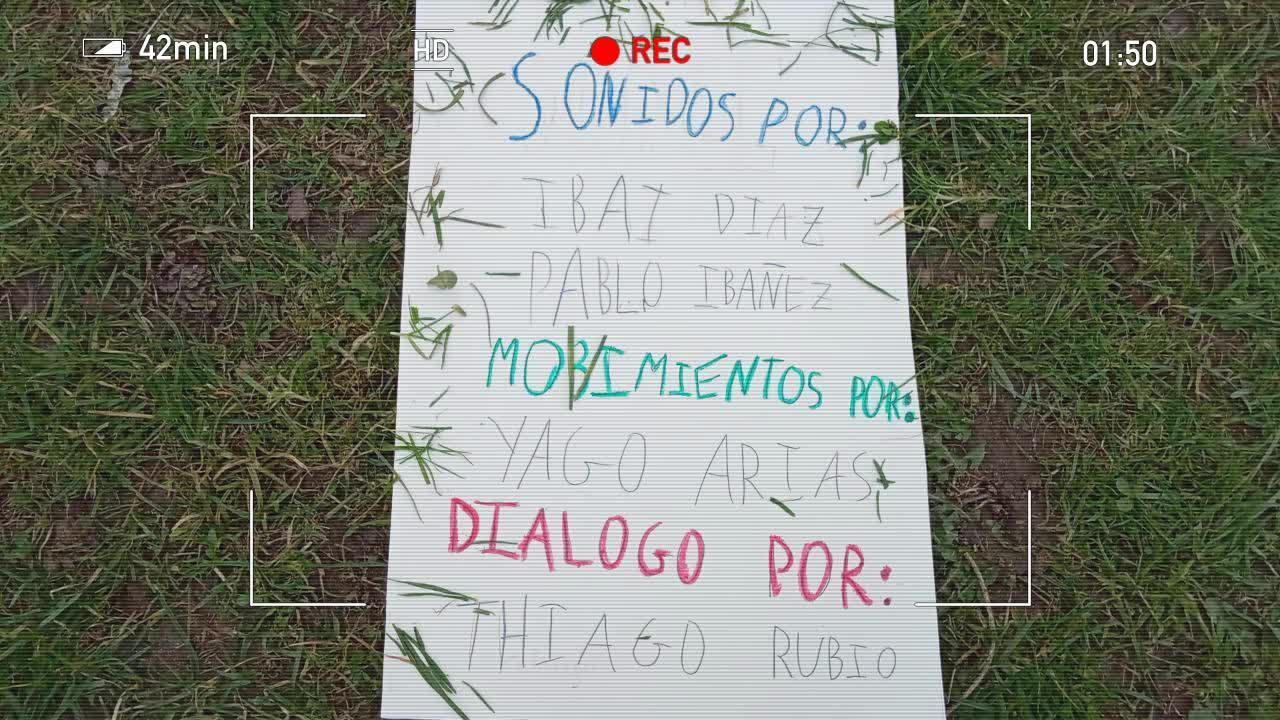 42min HD REC 01:50
SONIDOS POR:
IBAI DIAZ
PABLO IBAÑEZ
MOBIMIENTOS POR:
YAGO ARIAS
DIALOGO POR:
THIAGO RUBIO